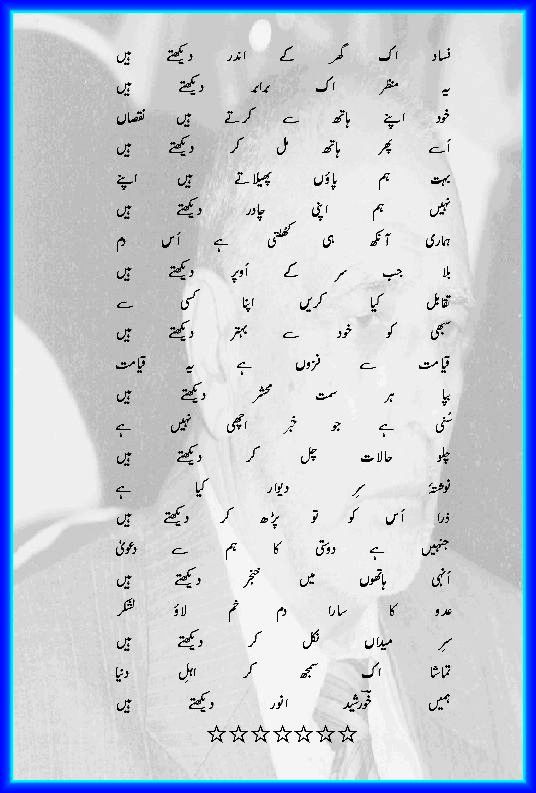 فساد اک گھر کے اندر دیکھتے ہیں
یہ منظر اک برابر دیکھتے ہیں
خود اپنے ہاتھ سے کرتے ہیں نقصاں
اُسے پھر ہاتھ مل کر دیکھتے ہیں
بہت ہم پاؤں پھیلاتے ہیں اپنے
نہیں ہم اپنی چادر دیکھتے ہیں
ہماری آنکھ ہی کھُلتی ہے اُس دم
بلا جب سر کے اُوپر دیکھتے ہیں
تقابل کیا کریں اپنا کسی سے
سبھی کو خود سے بہتر دیکھتے ہیں
قیامت سے فزوں ہے یہ قیامت
بپا ہر سمت محشر دیکھتے ہیں
سُنی ہے جو خبر اچھی نہیں ہے
چلو حالات چل کر دیکھتے ہیں
نوشتۂ سرِ دیوار کیا ہے
ذرا اُس کو تو پڑھ کر دیکھتے ہیں
جنہیں ہے دوستی کا ہم سے دعویٰ
اُنہی ہاتھوں میں خنجر دیکھتے ہیں
عدو کا سارا دم خم لاؤ لشکر
سرِ میداں نکل کر دیکھتے ہیں
تماشا اک سمجھ کر اہلِ دنیا
ہمیں خورشید انور دیکھتے ہیں
☆☆☆☆☆☆☆